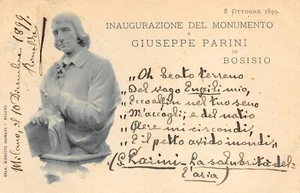 8 Ottobre 1899
INAUGURAZIONE DEL MONUMENTO
A
GIUSEPPE PARINI
IN
BOSISIO
„Oh beato terreno
„Del vago Eupili mio,
„Ecco alfin nel tuo seno
„M'accogli; e del natio
„Aere mi circondi,
„E il petto avido inondi.
(G. Parini - La salubrità del-
l'aria)
Milano, di 16 Dicembre 1899